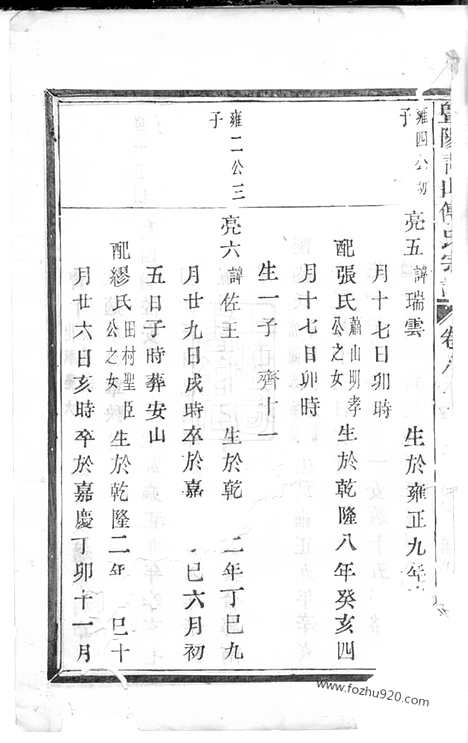 暨陽
傅氏宗
卷
雍四公初
子
亮五 諱瑞雲 生於雍正九年
月十七日卯時
配張氏 蕭山明孝公之女 生於乾隆八年癸亥四
月十七日卯時
生一子 齊十一
雍二公三
子
亮六 諱佐王 生於乾 二年丁巳九
月廿九日戌時卒於嘉 巳六月初
五日子時葬安山
配繆氏 田村聖臣公之女 生於乾隆二年 巳十
月廿六日亥時卒於嘉慶丁卯十一月
www.fozhu920.com